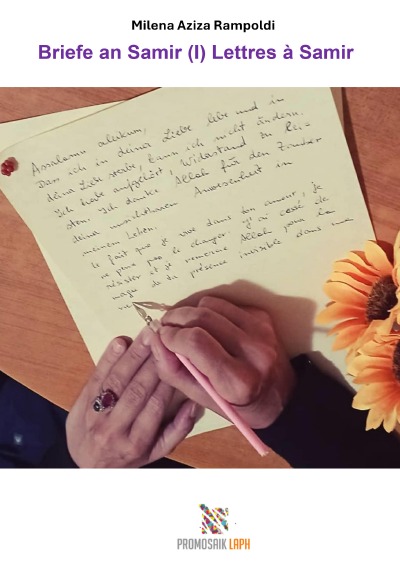 Milena Aziza Rampoldi
Briefe an Samir (I) Lettres à Samir
Assalamu alaikum,
Dass ich in deiner Liebe lebe und in
deine Liebe sterbe, kann ich nicht ändern.
Ich habe aufgehört, Widerstand zu lei-
sten. Ich danke Allah für den Zauber
deiner unsichtbaren Anwesenheit in
meinem Leben.
Le fait que je vive dans ton amour, je
ne peux pas le changer. J'ai cessé de
résister et je remercie Allah pour la
magie de ta présence invisible dans ma
PROMOSAIK LAPH